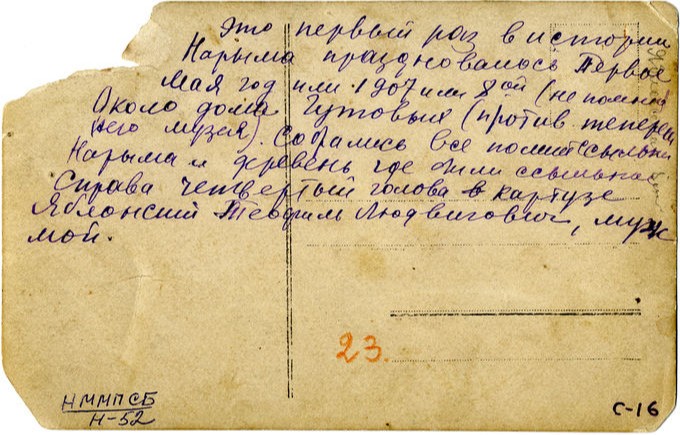 Это первый раз в истории
Нарыма праздновалось Первое
Мая год или 1907 или 8ой (не помню)
Около дома Гутовых (против тепереш
него музея). Собрались все политссыльн
Нарыма и деревень где жили ссыльные
Справа четвертый голова в картузе
Яблонский Теофим Людвигович, муж
мой.
23.
НММПСБ
Н-52
С-16